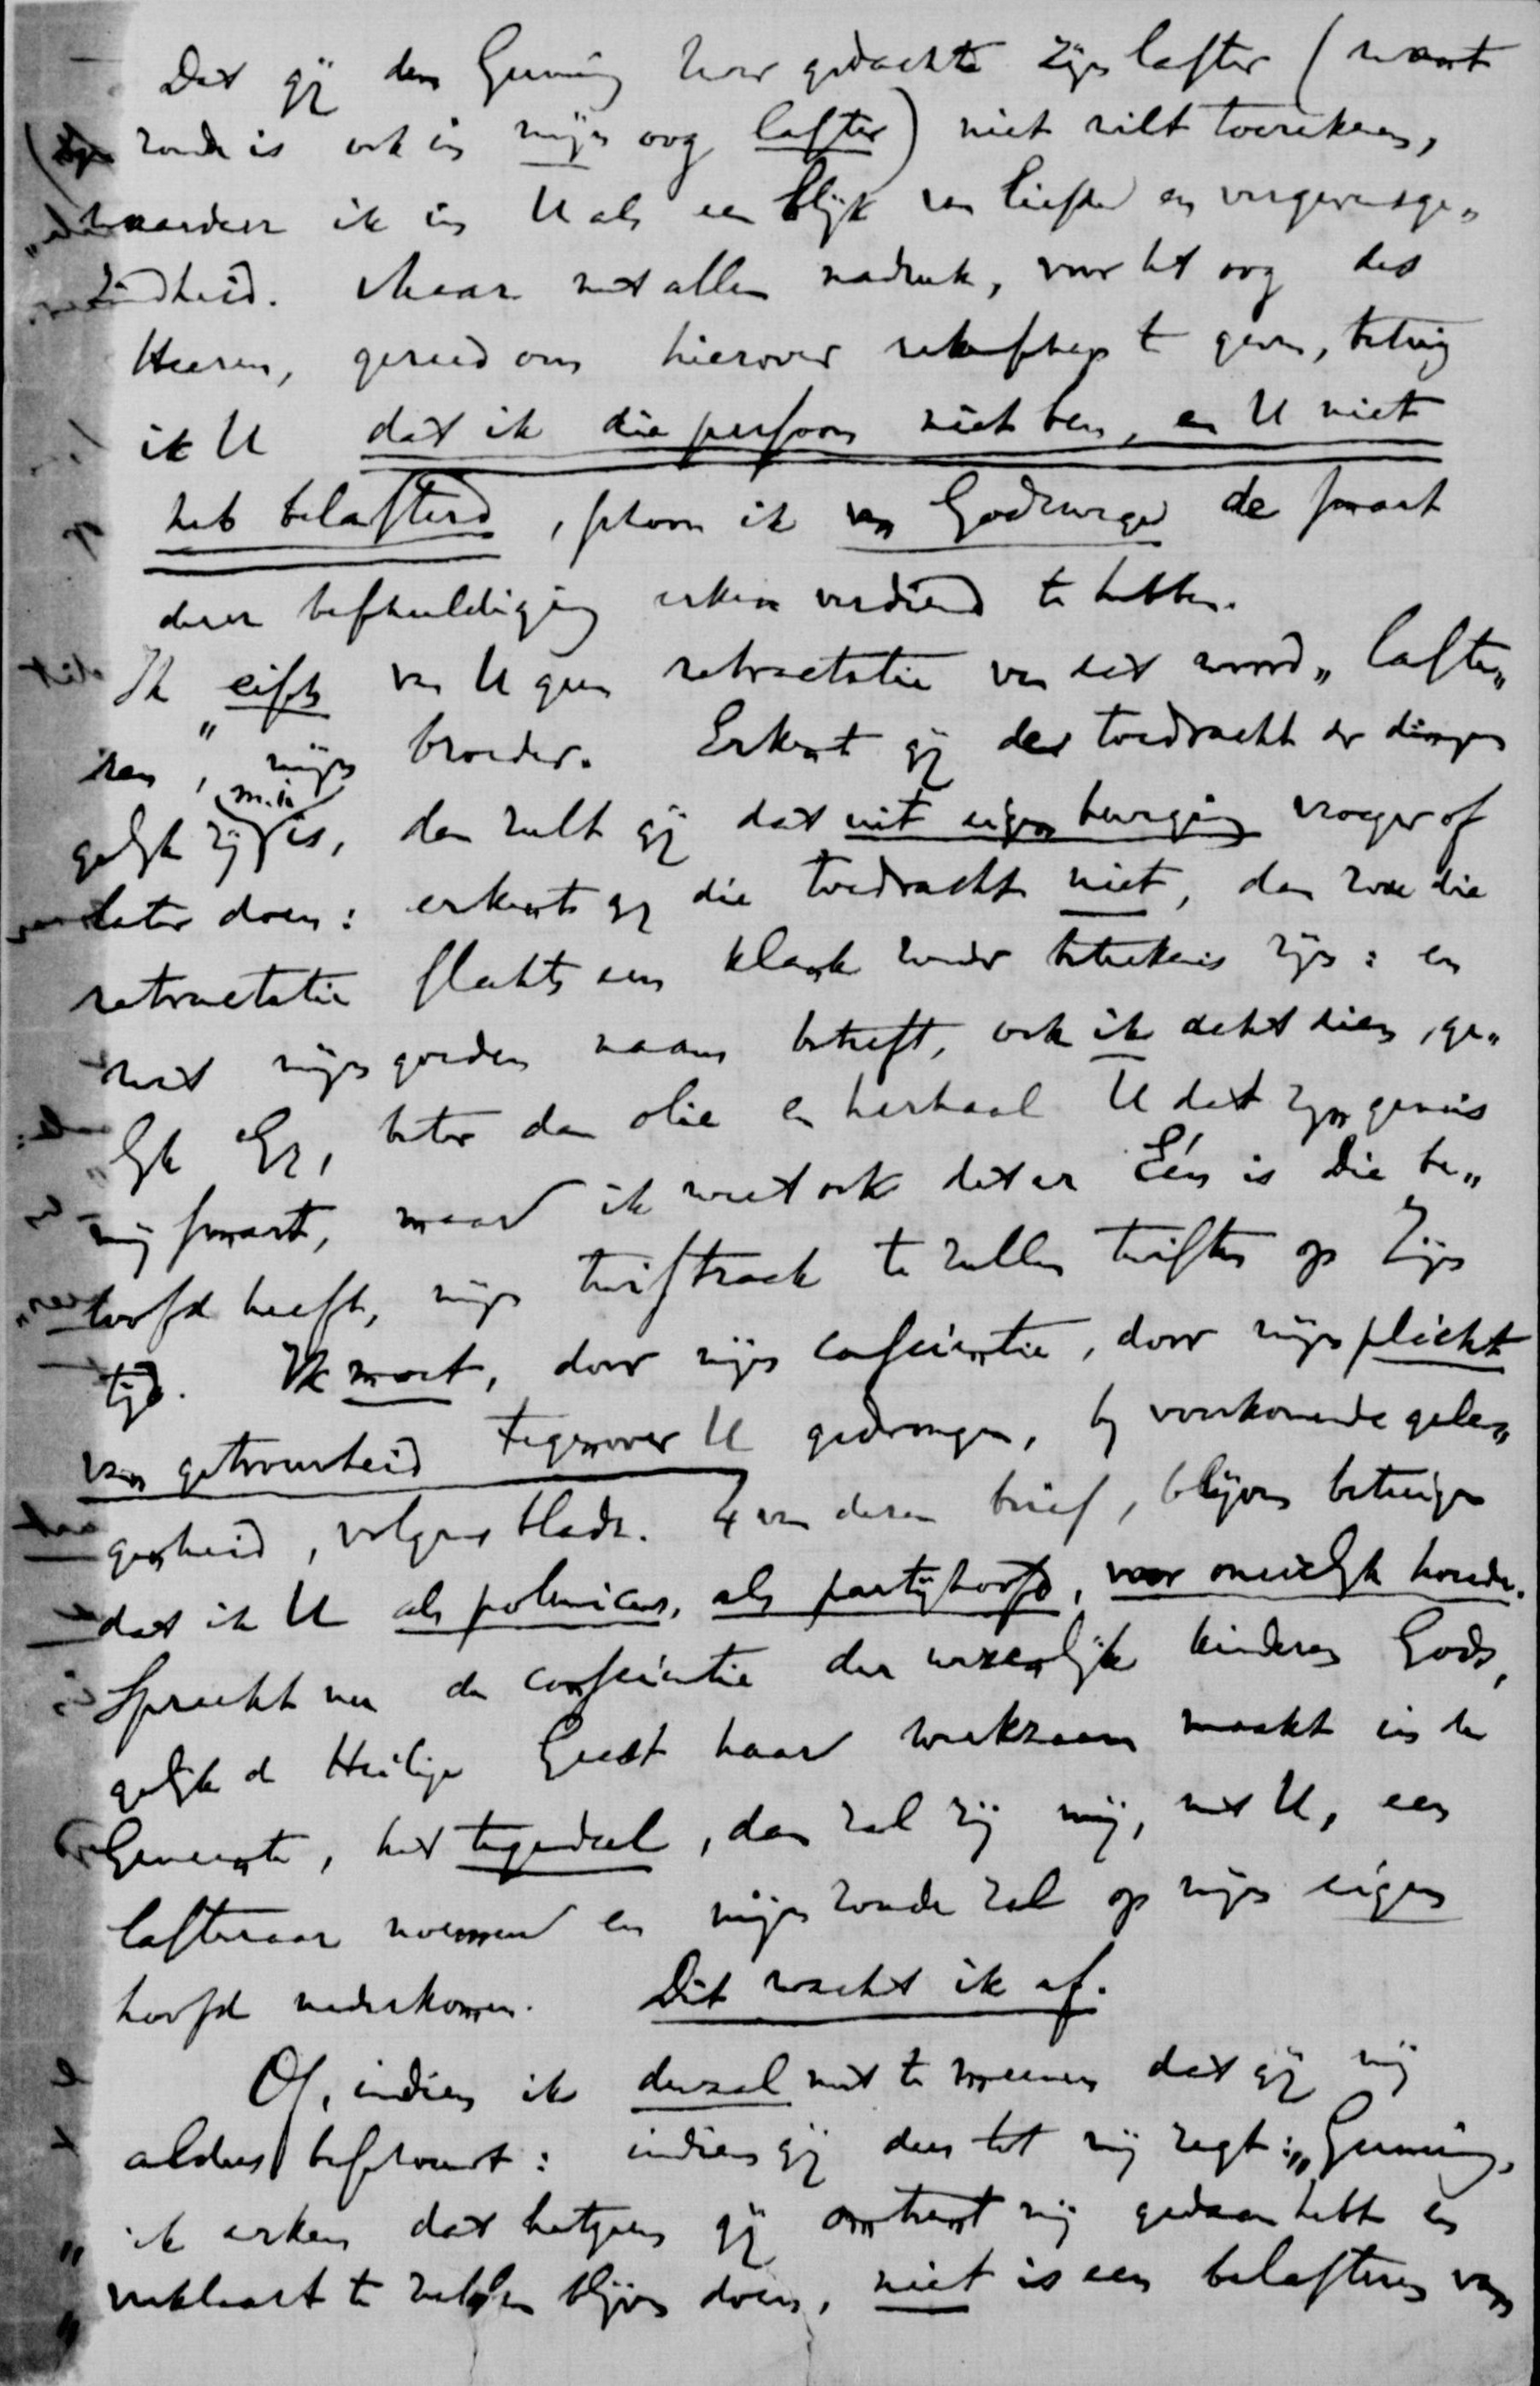 Dat gij den Gunning hier gedacht zijn laster (want
(zijn zonde is ook in mijn oog laster) niet wilt toerekenen,
waardeer ik in U als een blijk van liefde en vergevensge„
„zindheid. Maar met allen nadruk, voor het oog des
Heeren, gereed om hierover rekenschap te geven, betuig
ik U dat ik die persoon niet ben, en U niet
heb belasterd, schoon ik van Godswege de smaart
dezer beschuldiging erken verdiend te hebben.
Ik eisch van U geen retractatie van dit woord „laste„
„ren", mijn broeder. Erkent gij de toedracht der dingen
gelijk zij m.i. is, dan zult gij dat uit eigen beweging vroeger of
later doen: erkent gij die toedracht niet, dan zou die
retractatie slechts een klank zonder beteekenis zijn: en
wat mijn goeden naam betreft, ook ik acht dien, ge„
„lijk Gij, beter dan olie en herhaal U dat zijn gemis
mij smart, maar ik weet ook dat er Eén is Die be„
„loofd heeft, mijn twistzaak te zullen twisten op Zijn
tijd. Ik moet, door mijn conscientie, door mijn plicht
van getrouwheid tegenover U gedrongen, bij voorkomende gele„
„genheid, volgens bladz. 4 van dezen brief, blijven betuigen
dat ik U als polemicus, als partijhoofd, voor oneerlijk houde.
Spreekt nu de conscientie der wezenlijke kinderen Gods,
gelijk de Heilige Geest haar werkzaam maakt in de
Gemeente, het tegendeel, dan zal zij mij, met U, een
lasteraar noemen en mijn zonde zal op mijn eigen
hoofd nederkomen. Dit wacht ik af.
Of, indien ik dwaal met te meenen dat gij mij
aldus beschouwt: indien gij dus tot mij zegt: „Gunning,
„ik erken dat hetgeen gij omtrent mij gedaan hebt en
„verklaart te zullen blijven doen, niet is een belasteren van